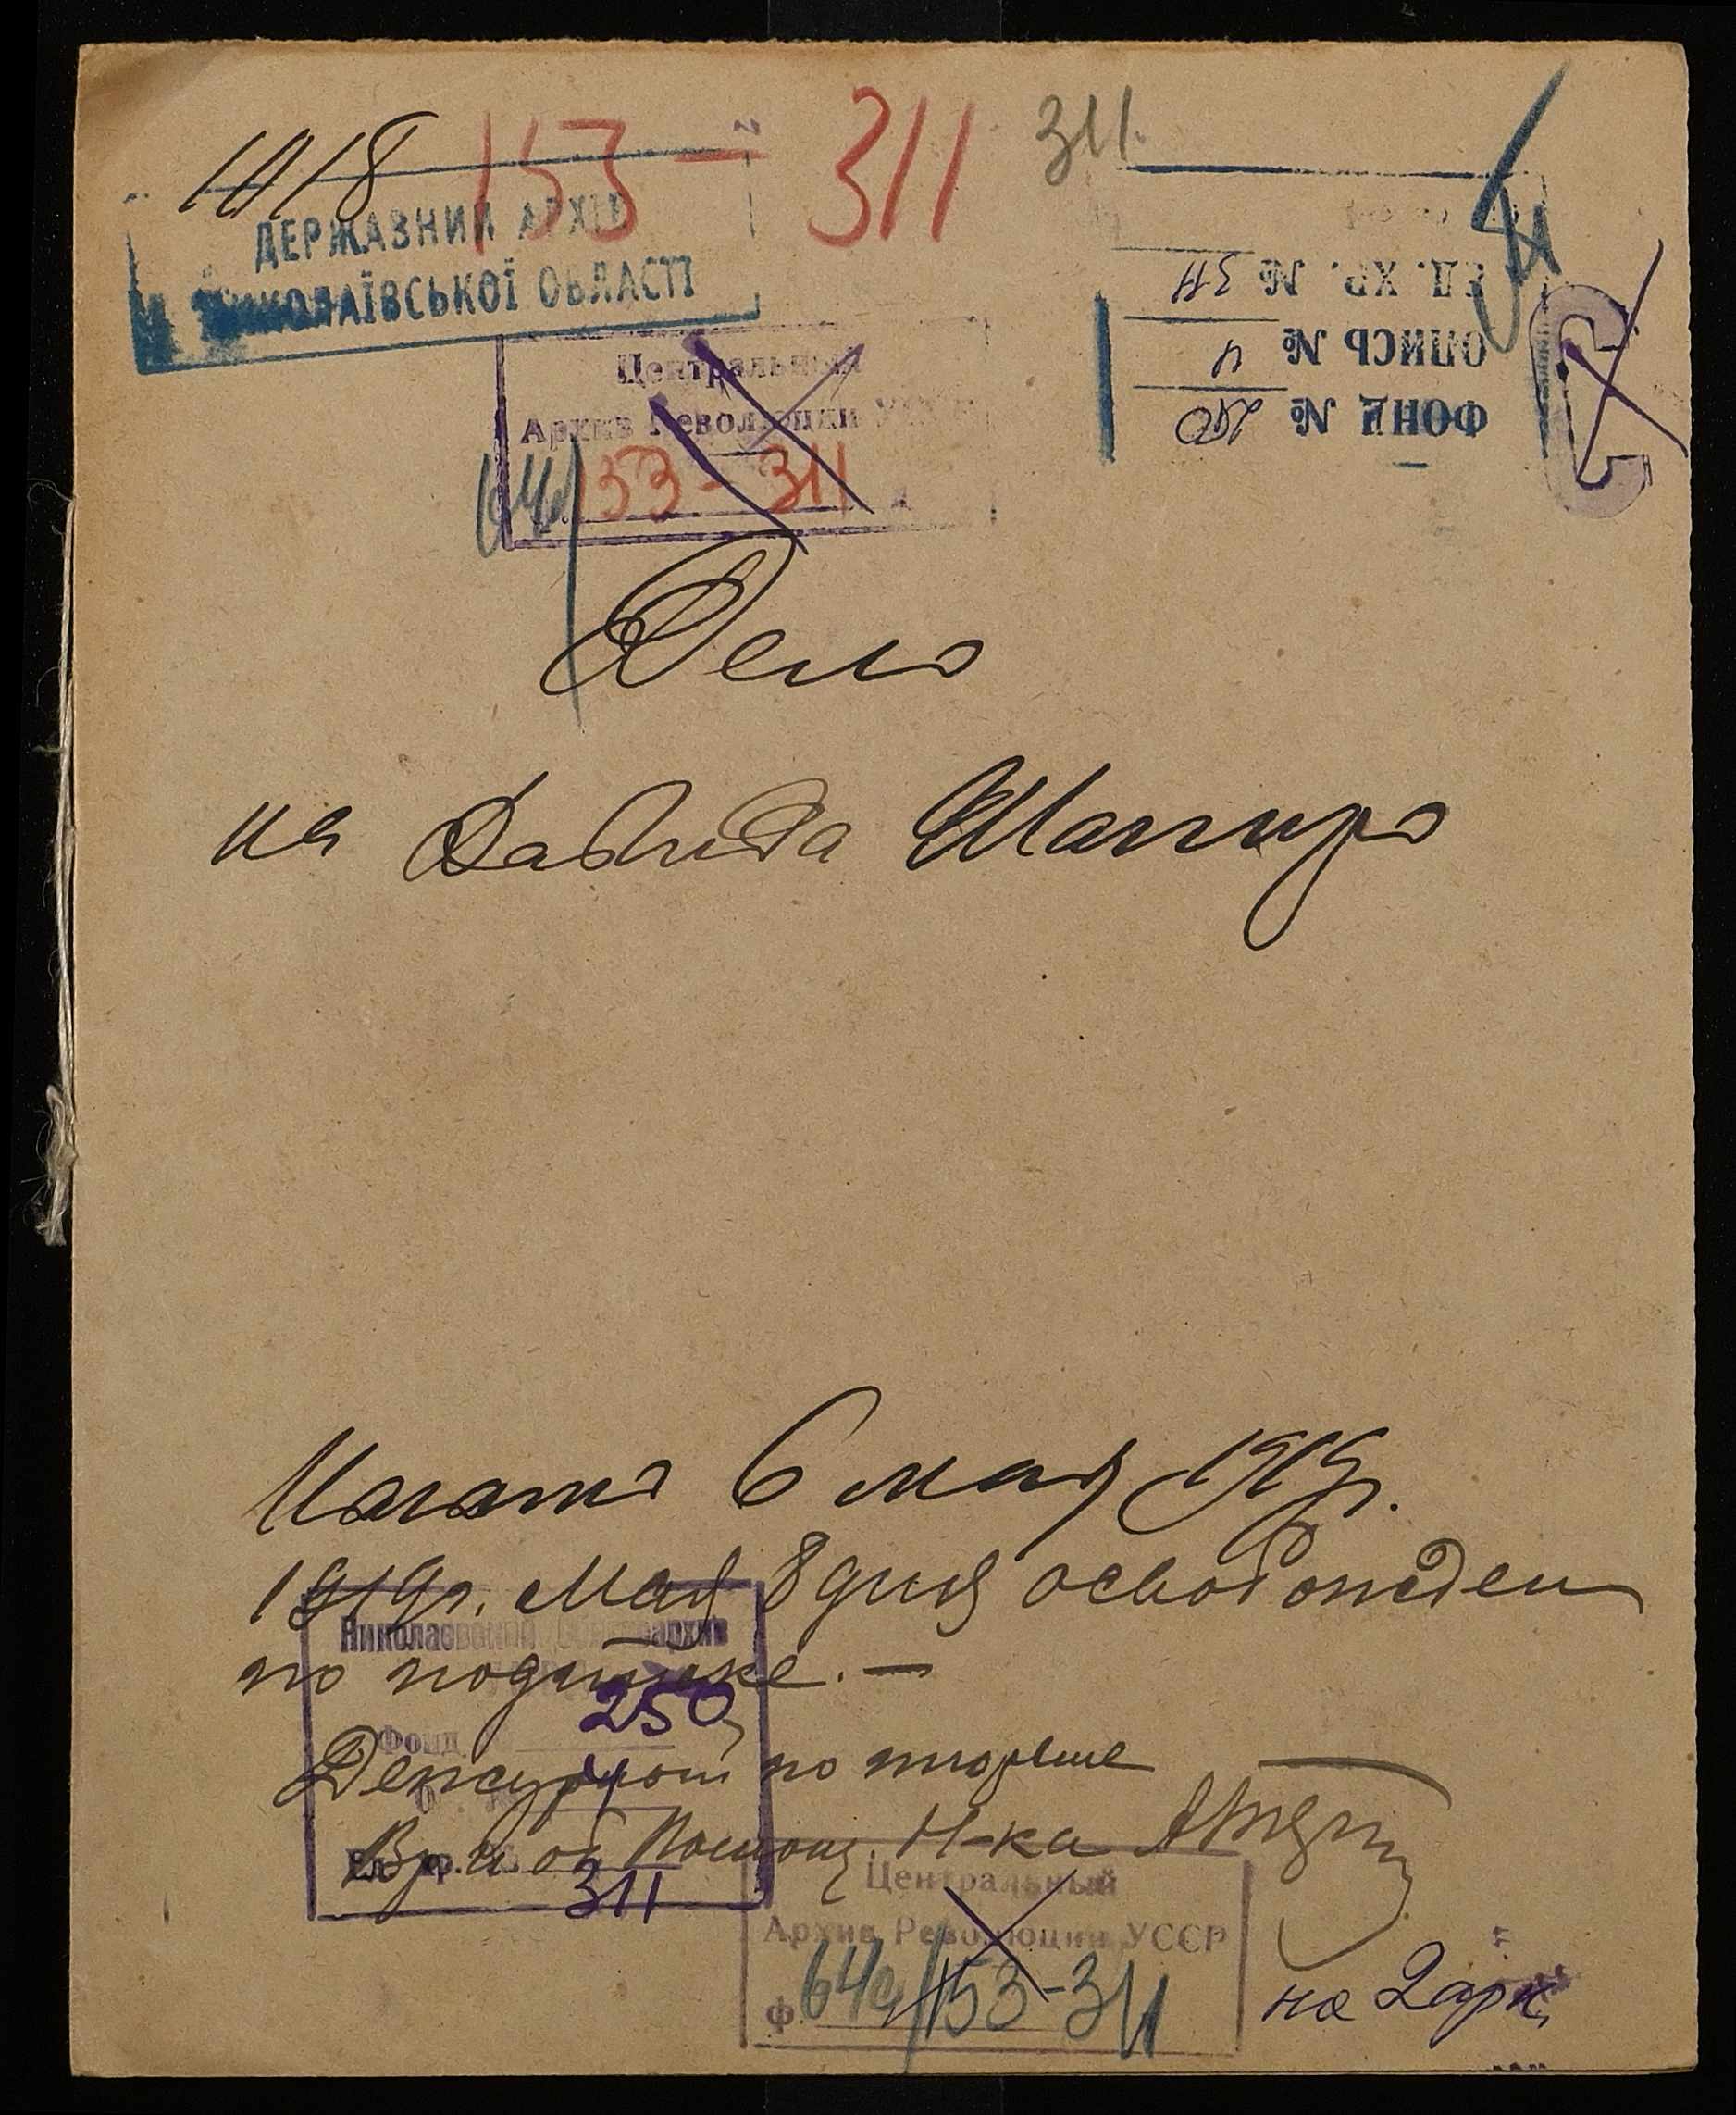 1018 153 - 311 311.
ДЕРЖАВНИЙ АРХІВ
МИКОЛАЇВСЬКОЇ ОБЛАСТІ
ФОНД № 250
ОПИСЬ № 4
ЕД. ХР. № 311
Центральный
Архив Революции УССР
64а/153-311
Дело
на Давида Шапиро
Начато 6 мая 1919г.
1919г. мая 8 дня освобожден
по подписке. —
Николаевский Облгосархив
Фонд 250
4
Ед. хр. 311
Дежурной по тюрьме
Вр. и об Помощ. Н-ка
Центральный
Архив Революции УССР
ф. 64а/153-311
на 2 арк.